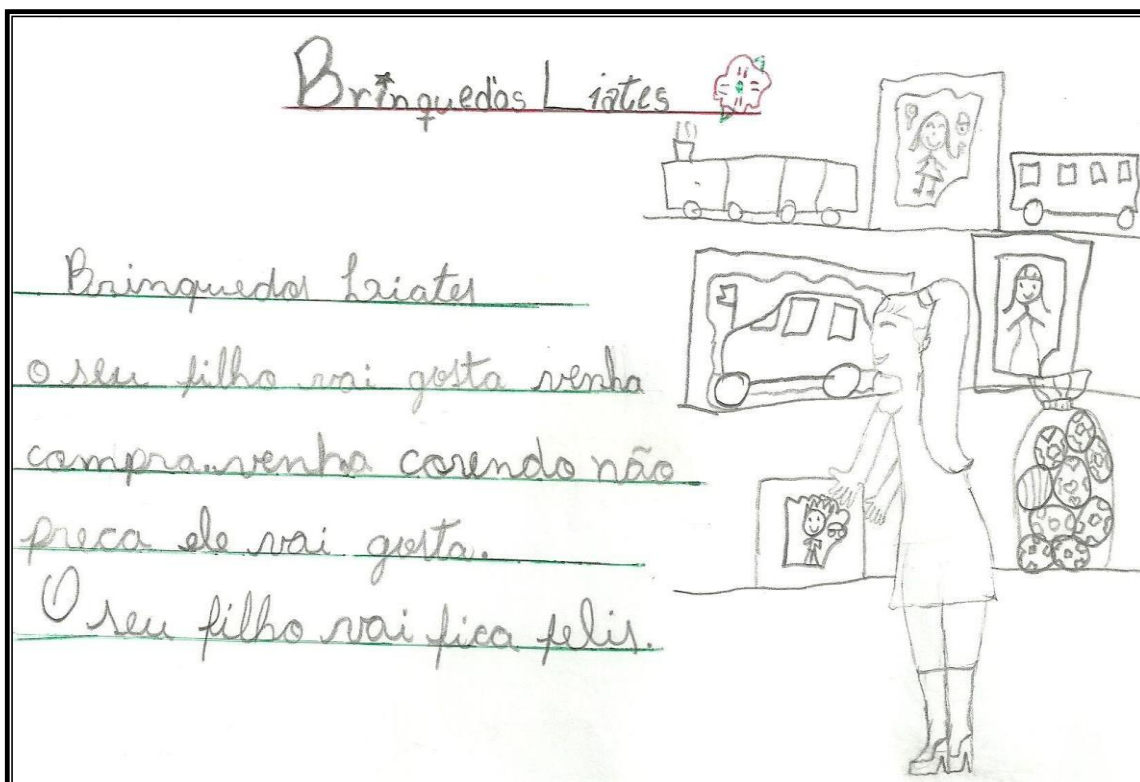 Brinquedos Liates
Brinquedos Liates
o seu filho vai gosta venha
compra. venha corendo não
preca ele vai gosta.
O seu filho vai fica felis.